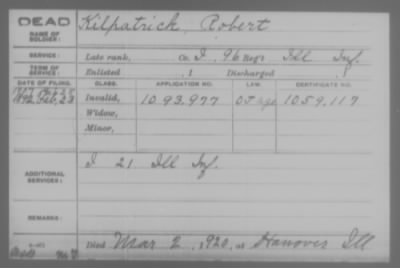 DEAD
NAME OF SOLDIER:
Kilpatrick, Robert
SERVICE:
Late rank, Co. I, 96 Reg't Ill Inf.
TERM OF SERVICE:
Enlisted , 1 Discharged , 1
DATE OF FILING. CLASS. APPLICATION NO. LAW. CERTIFICATE NO.
1892 Feb, 23 Invalid, 1093,977 1059,117
Widow,
Minor,
ADDITIONAL SERVICES:
I 21 Ill Inf.
REMARKS:
Died Mar 2, 1920, at Hanover Ill